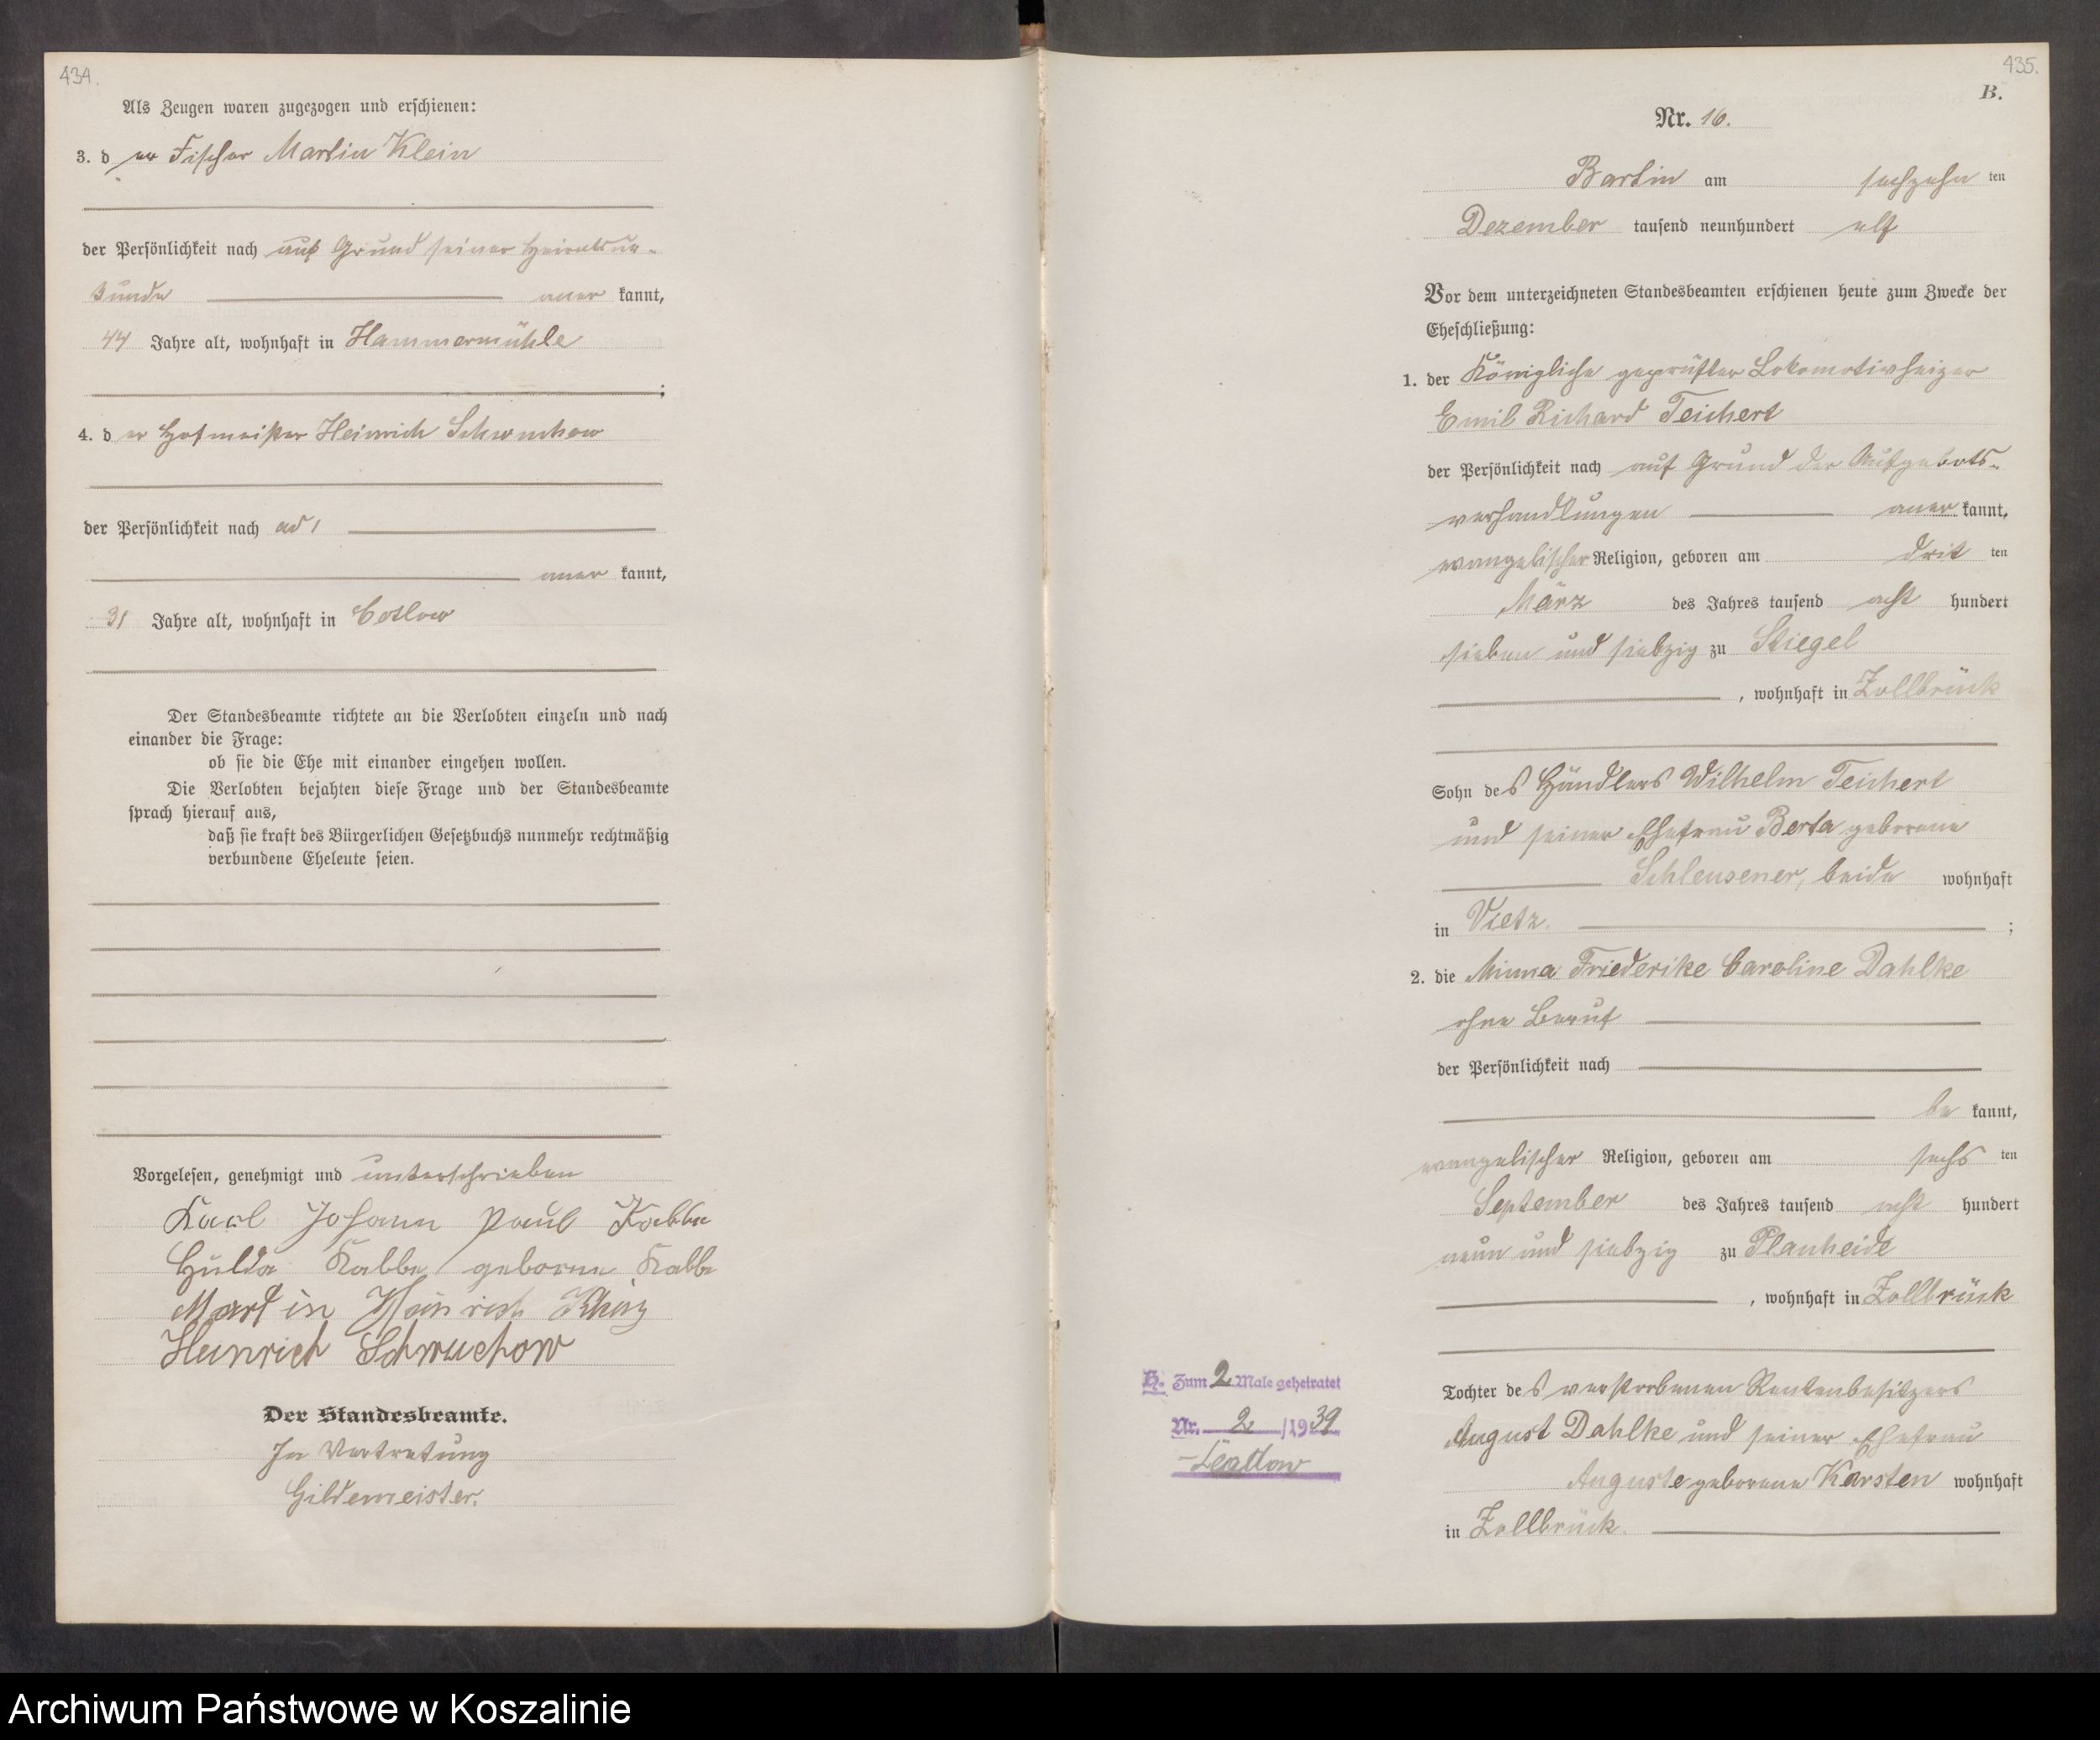 434.
Als Zeugen waren zugezogen und erschienen:
3. der Fischer Martin Klein
der Persönlichkeit nach auf Grund seiner Heiratsur-
kunde aner kannt,
44 Jahre alt, wohnhaft in Hammermühle
;
4. der Hofmeister Heinrich Schwuchow
der Persönlichkeit nach ad 1
aner kannt,
31 Jahre alt, wohnhaft in Cotlow
Der Standesbeamte richtete an die Verlobten einzeln und nach
einander die Frage:
ob sie die Ehe mit einander eingehen wollen.
Die Verlobten bejahten diese Frage und der Standesbeamte
sprach hierauf aus,
daß sie kraft des Bürgerlichen Gesetzbuchs nunmehr rechtmäßig
verbundene Eheleute seien.
Vorgelesen, genehmigt und unterschrieben
Karl Johann Paul Kabbe
Hulda Kabbe geborene Kabbe
Martin Heinrich
Heinrich Schwuchow
Der Standesbeamte.
In Vertretung
Gildemeister.
435.
B.
Nr. 16.
Bartin am sechzehn ten
Dezember tausend neunhundert elf
Vor dem unterzeichneten Standesbeamten erschienen heute zum Zwecke der
Eheschließung:
1. der Königliche geprüfter Lokomotivheizer
Emil Richard Teichert
der Persönlichkeit nach auf Grund der Aufgebots-
verhandlungen aner kannt,
evangelischer Religion, geboren am drit ten
März des Jahres tausend acht hundert
sieben und siebzig zu Stiegel
, wohnhaft in Zollbrück
Sohn des Händlers Wilhelm Teichert
und seiner Ehefrau Berta geborene
Schleusener, beide wohnhaft
in Vietz. ;
2. die Minna Friederike Caroline Dahlke
ohne Beruf
der Persönlichkeit nach
be kannt,
evangelischer Religion, geboren am sechs ten
September des Jahres tausend acht hundert
neun und siebzig zu Planheide
, wohnhaft in Zollbrück
Tochter des verstorbenen Rentenbesitzers
August Dahlke und seiner Ehefrau
Auguste geborene Karsten wohnhaft
in Zollbrück.
H. Zum 2 Male geheiratet
Nr. 2 /1939
Archiwum Państwowe w Koszalinie